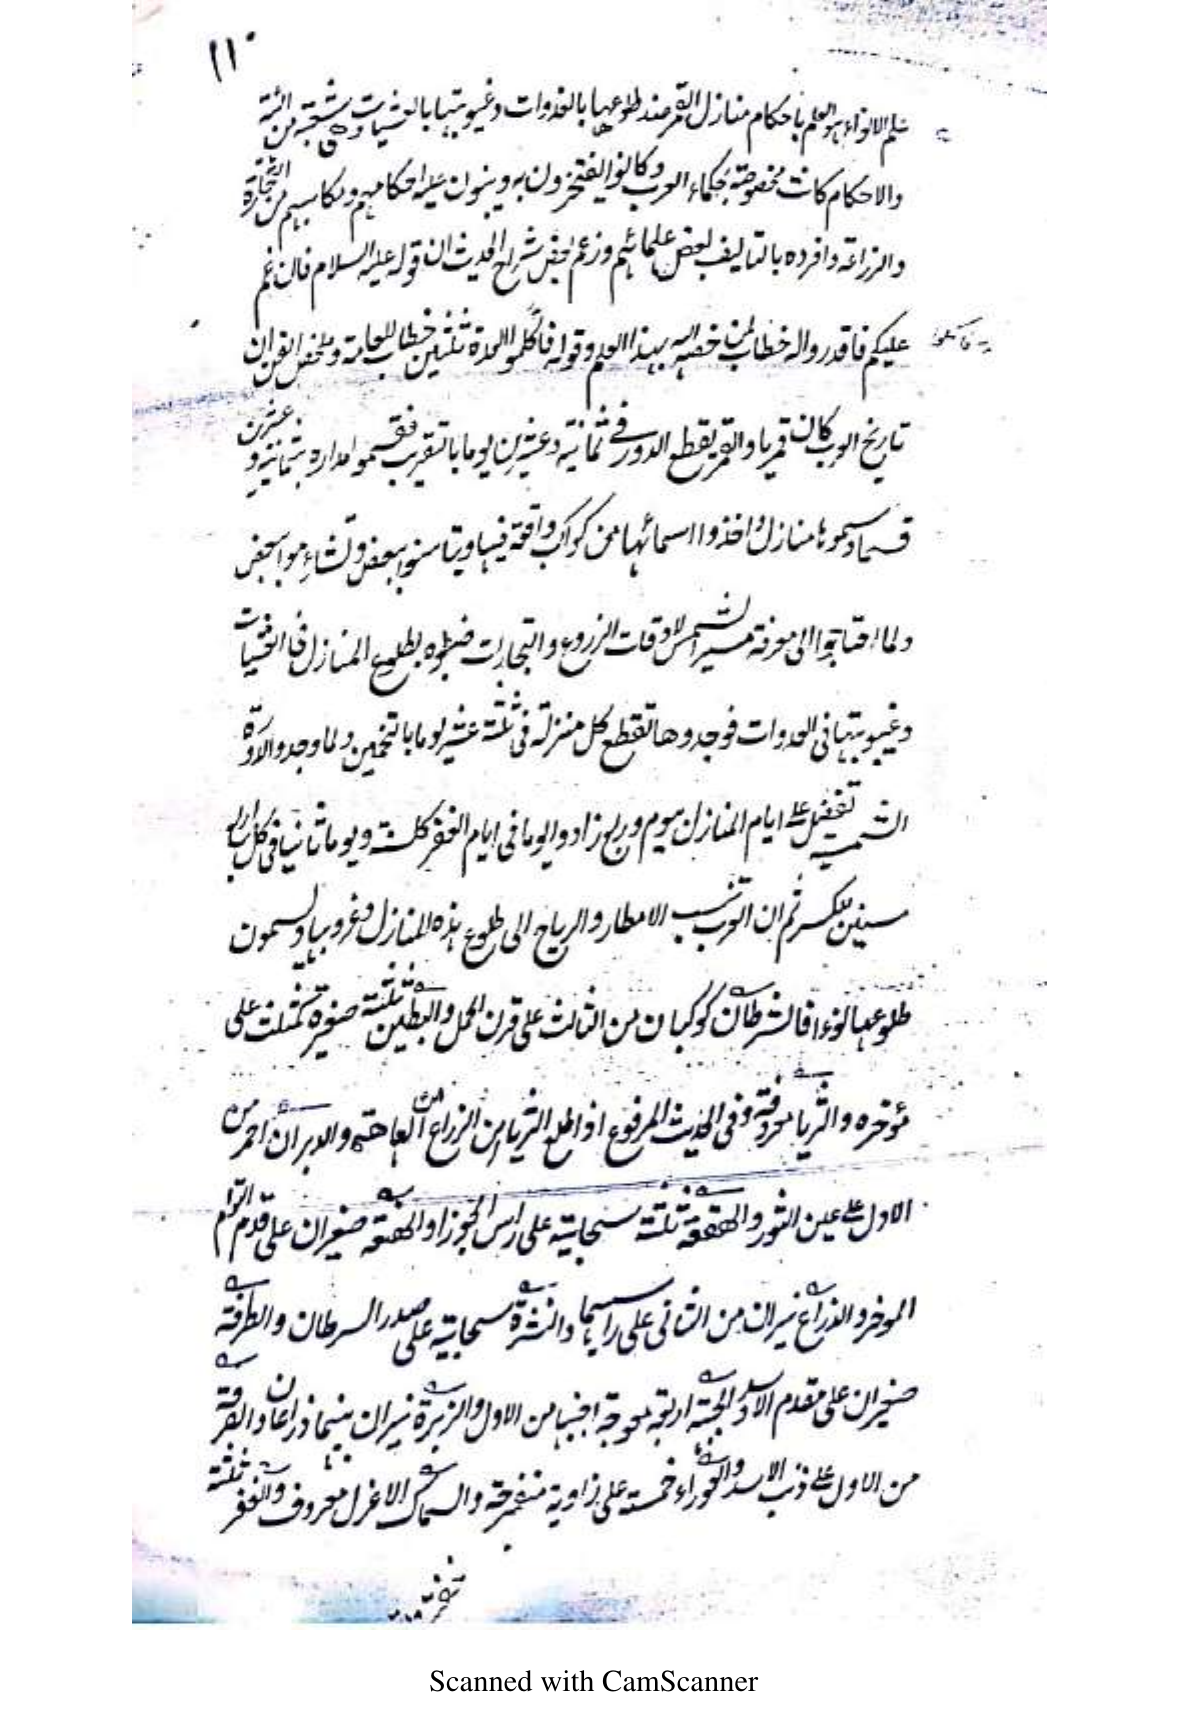 ١١٠
علم الانواء هو العلم باحكام منازل القمر عند طلوعها بالغدوات وغيوبتها بالعشيات وهى شعبة من
والاحكام كانت مخصوصة بحكماء العرب وكانوا يفتخرون به ويبنون عليه احكامهم ومكاسبهم من التجارة
والزراعة وافرده بالتاليف بعض علمائهم وزعم بعض شراح الحديث ان قوله عليه السلام فان غم
عليكم فاقدروا له خطاب لمن خصه الله بهذا العلم وقوله فاكملوا العدة ثلثين خطاب للعامة وملخص القران
تاريخ العرب كان قمريا والقمر يقطع الدور فى ثمانية وعشرين يوما بالتقريب فقسموا مداره بثمانية و عشرين
قسما وسموها منازل واخذوا اسمائها من كواكب واقعة فيها ويتا سنوا ببعض وتشاءموا ببعض
ولما احتاجوا الى معرفة مسير الشمس لاوقات الزروع والتجارات ضبطوه بطلوع المنازل فى العشيات
وغيوبتها فى الغدوات فوجدوها تقطع كل منزلة فى ثلثة عشر يوما بالتخمين ولما وجدوا الادورة
الشمسية تفضل على ايام المنازل بيوم وربع زادوا يوما فى ايام الغفر كل سنة ويوما ثانيا فى كل اربع
سنين للكسر ثم ان العرب تنسب الامطار والرياح الى طلوع هذه المنازل وغروبها ويسمون
طلوعها نوءا فالشرطان كوكبان من الثالث على قرن الحمل والبطين ثلثة صغيرة كمثلث على
مؤخره والثريا معروفة وفى الحديث المرفوع اذا طلع الثريا امن الزراع من العاهة والدبران احمر من
الاول على عين الثور والهقعة ثلثة سحابية على راس الجوزا والهنعة صغيران على قدم التوام
الموخر والذراع نيران من الثانى على راسيهما والنثرة سحابية على صدر السرطان والطرفة
صغيران على مقدم الاسد والجبهة اربعة معوجة اجنبها من الاول والزبرة نيران بينهما ذراعان والصرفة
من الاول على ذنب الاسد والعوراء خمسة على زاوية منفرجة والسماك الاعزل معروف والغفر ثلثة
Scanned with CamScanner